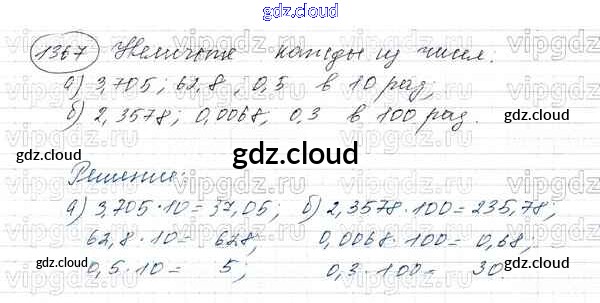 gdz.cloud
1367 Увеличьте каждый из чисел:
а) 3,705; 62,8; 0,5 в 10 раз;
б) 2,3578; 0,0068; 0,3 в 100 раз.
gdz.cloud gdz.cloud
gdz.cloud
Решение:
а) 3,705·10=37,05; б) 2,3578·100=235,78;
62,8·10= 628; 0,0068·100=0,68;
0,5·10= 5; 0,3·100= 30
gdz.cloud gdz.cloud gdz.cloud